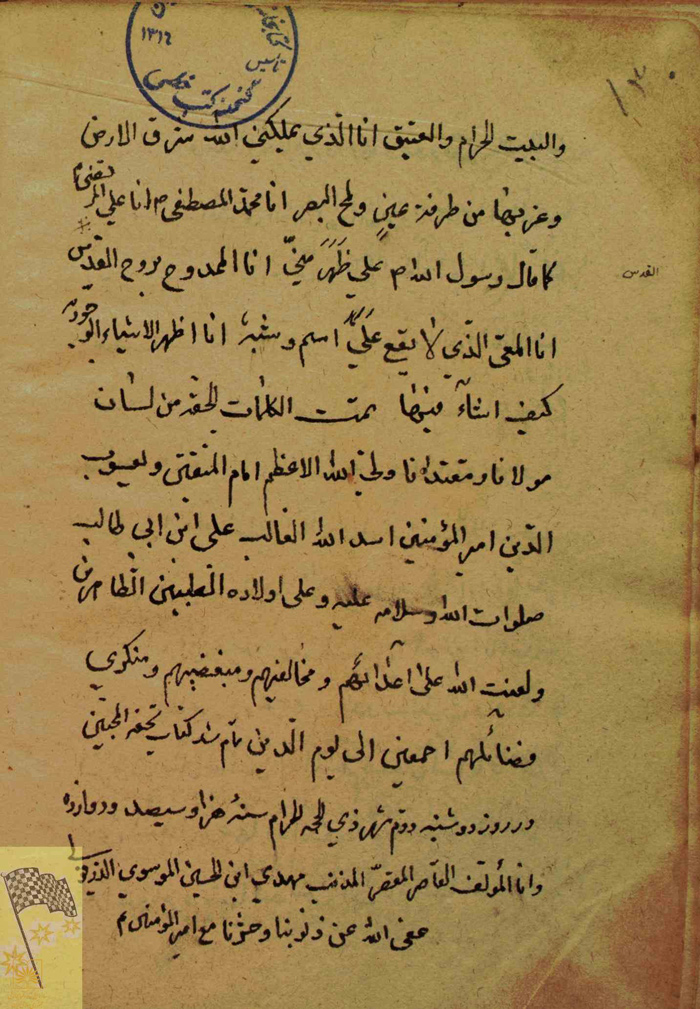 ١٣٠
١٣١٦
تاسيس
والبيت الحرام والعتيق انا الّذي يملكني الله شرق الارض
وغربها من طرفة عينٍ ولمح البصر انا محمّد المصطفى ص انا علي المرتضى ع
كما قال رسول الله ص علي ظَهَرَ منّي انا الممدوح بروح القدس
القدس
انا المعنى الّذي لا يقع عَلَيَّ اسم وشبه انا اظهر الاشياء الوجودية
كيف اشآء فيها تمت الكلمات الحقه من لسان
مولانا ومقتدانا ولي الله الاعظم امام المتقين ويعسوب
الدّين امير المؤمنين اسد الله الغالب علي ابن ابي طالب
صلوات الله وسلامه عليه وعلى اولاده الطيبين الطاهرين
ولعنت الله على اعدائهم ومخالفيهم ومبغضيهم ومنكري
فضائلهم اجمعين الى يوم الدّين تمام شد كتاب تحفه المحبّين
در روز دوشنبه دوّم شهر ذي الحجه الحرام سنهٔ هزار و سيصد و دوازده
وانا المؤلّف القاصر المقصّر المذنب مهدي ابن الحسين الموسوي
عفى الله عن ذنوبنا وحشرنا مع امير المؤمنين ع